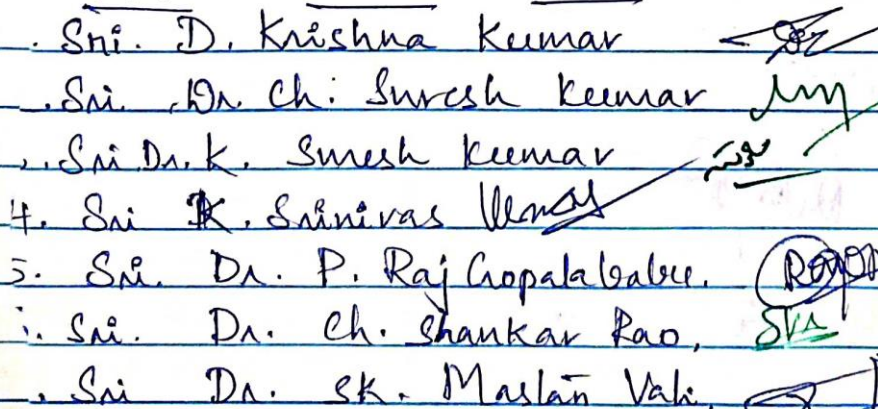 . Sri. D. Krishna Kumar
. Sri. Dr. Ch. Suresh Kumar
. Sri Dr. K. Suresh Kumar
4. Sri K. Srinivas
5. Sri. Dr. P. Raj Gopalababu.
. Sri. Dr. Ch. Shankar Rao,
. Sri Dr. SK. Maslan Vali